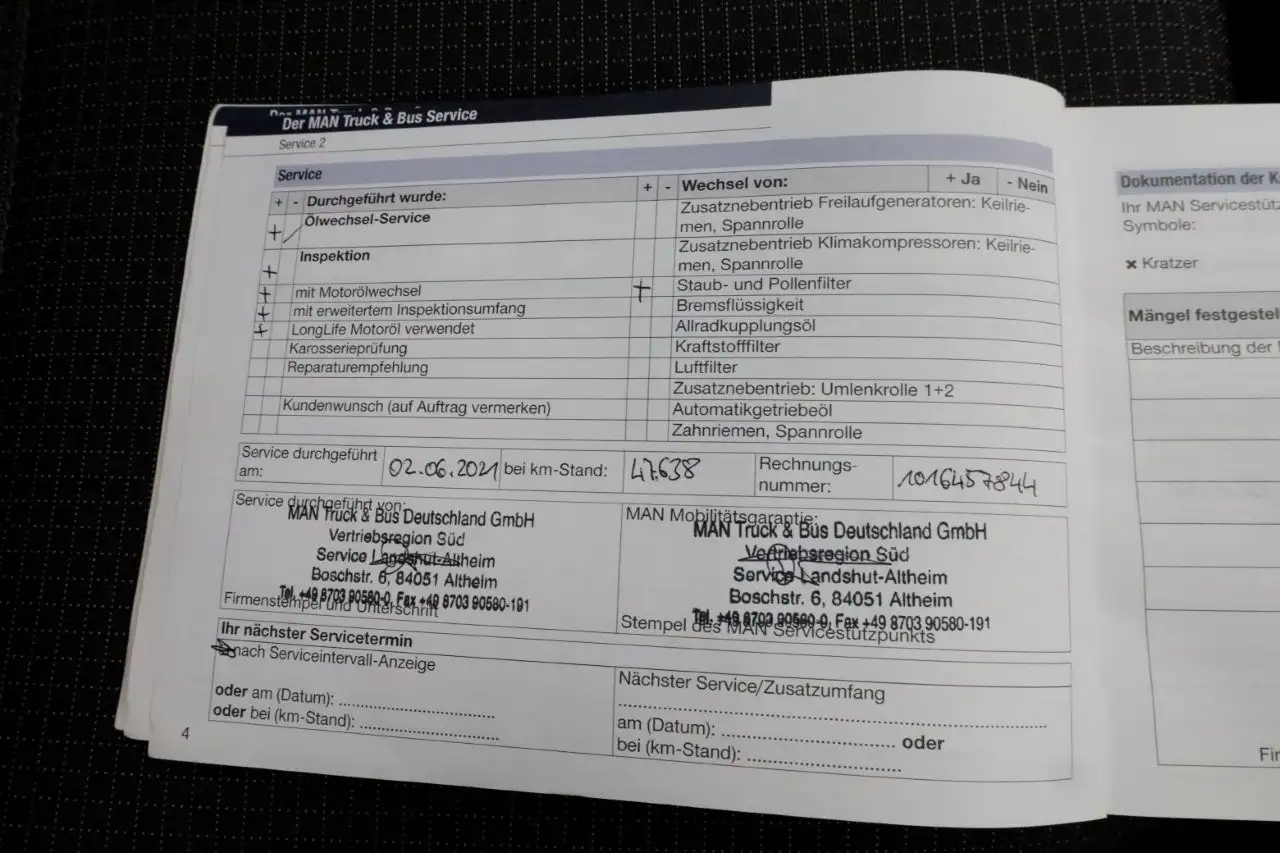 Der MAN Truck & Bus Service
Service 2
Service
+ - Durchgeführt wurde:
+ Ölwechsel-Service
+ Inspektion
+ mit Motorölwechsel
+ mit erweitertem Inspektionsumfang
+ LongLife Motoröl verwendet
Karosserieprüfung
Reparaturempfehlung
Kundenwunsch (auf Auftrag vermerken)
+ - Wechsel von: + Ja - Nein
Zusatznebentrieb Freilaufgeneratoren: Keilrie-
men, Spannrolle
Zusatznebentrieb Klimakompressoren: Keilrie-
men, Spannrolle
+ Staub- und Pollenfilter
Bremsflüssigkeit
Allradkupplungsöl
Kraftstofffilter
Luftfilter
Zusatznebentrieb: Umlenkrolle 1+2
Automatikgetriebeöl
Zahnriemen, Spannrolle
Service durchgeführt
am: 02.06.2021 bei km-Stand: 47.638 Rechnungs-
nummer: 1016457844
Service durchgeführt von:
MAN Truck & Bus Deutschland GmbH
Vertriebsregion Süd
Service Landshut-Altheim
Boschstr. 6, 84051 Altheim
Tel. +49 8703 90580-0, Fax +49 8703 90580-191
Firmenstempel und Unterschrift
MAN Mobilitätsgarantie:
MAN Truck & Bus Deutschland GmbH
Vertriebsregion Süd
Service Landshut-Altheim
Boschstr. 6, 84051 Altheim
Tel. +49 8703 90580-0, Fax +49 8703 90580-191
Stempel des MAN Servicestützpunkts
Ihr nächster Servicetermin
nach Serviceintervall-Anzeige
oder am (Datum):
oder bei (km-Stand):
Nächster Service/Zusatzumfang
am (Datum): oder
bei (km-Stand):
4
Dokumentation der
Ihr MAN
Symbole:
× Kratzer
Mängel
Beschreibung der